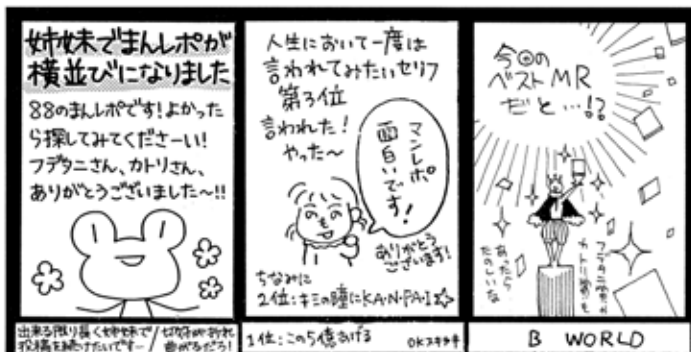 姉妹でまんレポが
横並びになりました
88のまんレポです!よかった
ら探してみてくださーい!
フデタニさん、カトリさん、
ありがとうございました〜!!
出来る限り長く姉妹で
投稿を続けたいですー
人生において一度は
言われてみたいセリフ
第3位
言われた!
やった〜
マンレポ
面白いです!
ありがとう
ございます!
ちなみに
2位:キミの瞳にKA・N・PA・I☆
1位:この5億あげる
OKスキヤキ
今回の
ベストMR
だと…!?
フデタニ賞や
カトリ賞も
あったら
たのしいな
B WORLD